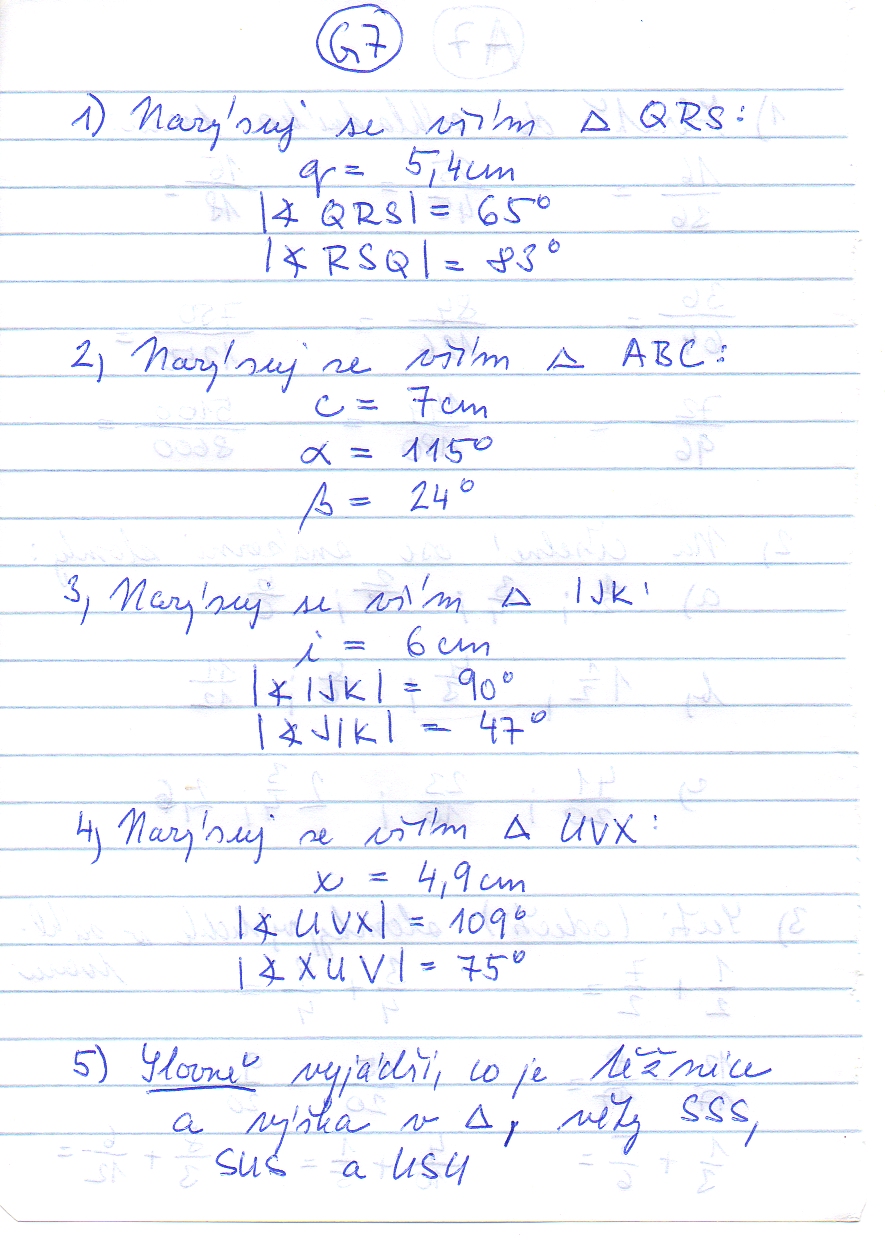 G7
1) Narýsuj se vším △ QRS:
q = 5,4cm
|∢ QRS| = 65°
|∢ RSQ| = 83°
2, Narýsuj se vším △ ABC:
c = 7cm
α = 115°
β = 24°
3, Narýsuj se vším △ IJK:
i = 6cm
|∢ IJK| = 90°
|∢ JIK| = 47°
4, Narýsuj se vším △ UVX:
x = 4,9cm
|∢ UVX| = 109°
|∢ XUV| = 75°
5) Slovně vyjádři, co je těžnice
a výška v △, věty SSS,
SUS a USU